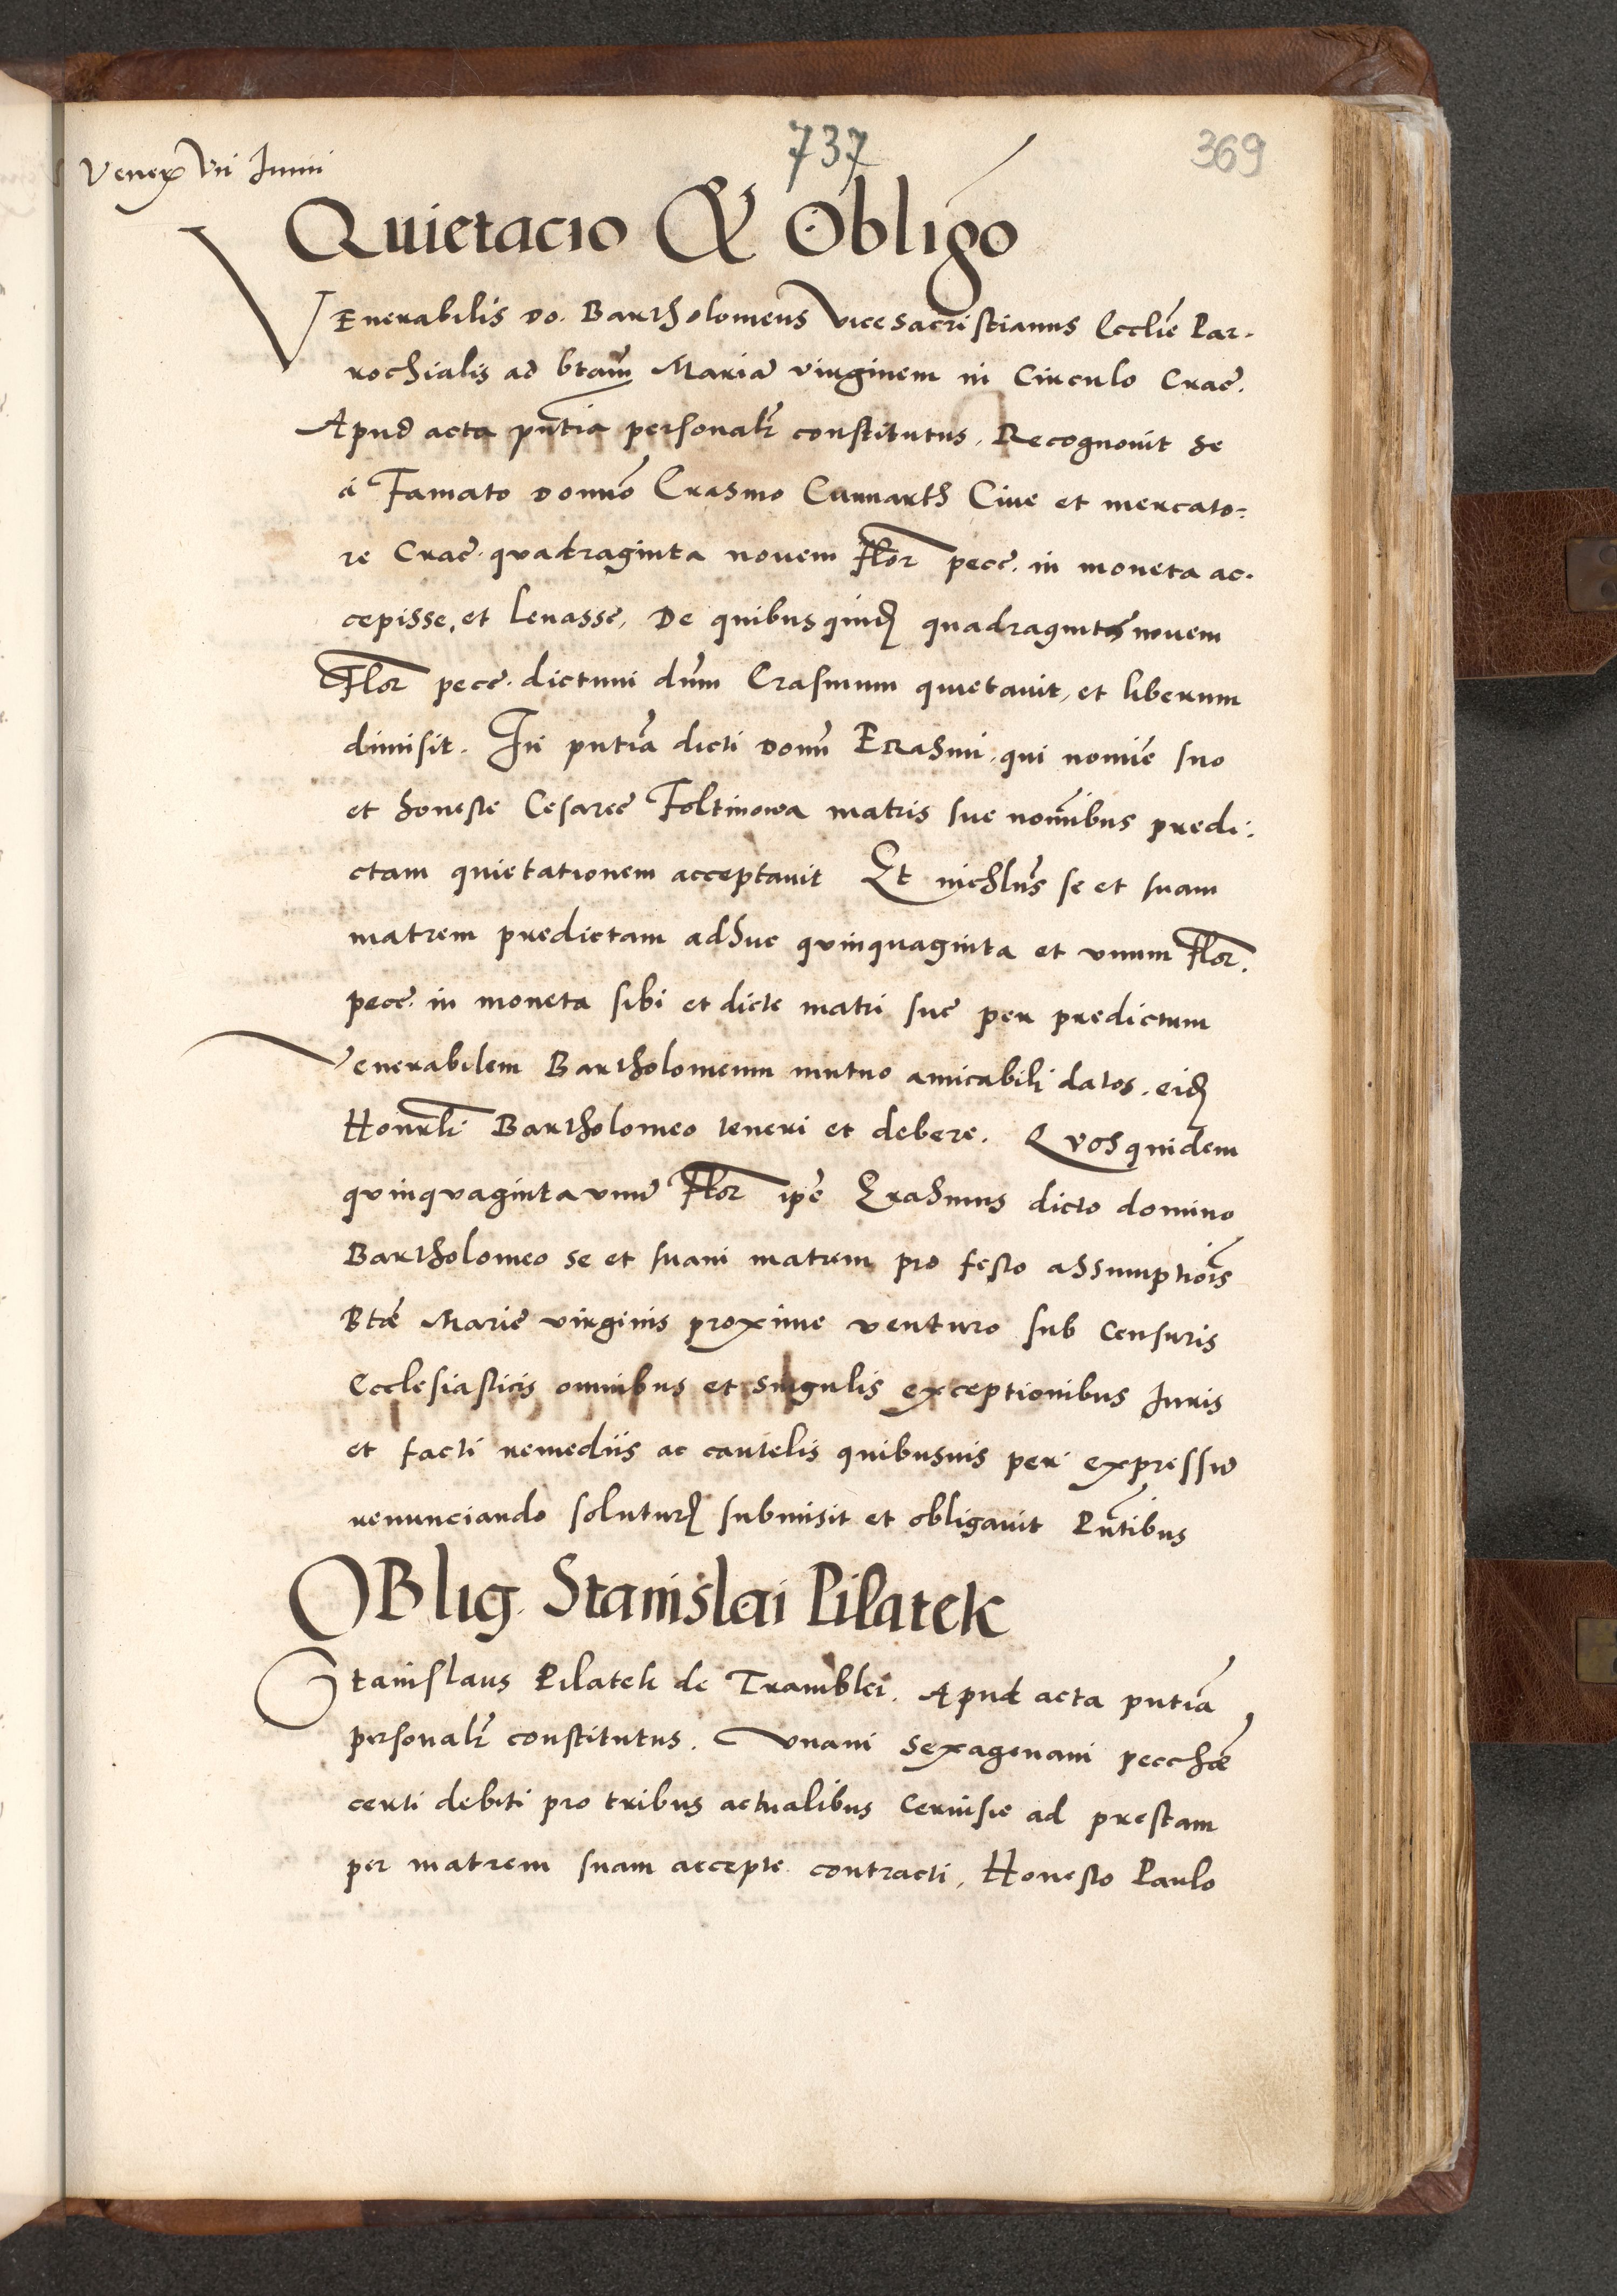 737
369
Veneris Vii Junii
Quietacio & Obligo
VEnerabilis do. Bartholomeus vicesacristianus Ecclie Par-
rochialis ad btam Maria virginem in Circulo Crac.
Apud acta pntia personalr constitutus. Recognovit se
a Famato domno Erasmo Cunnarth Cive et mercato-
re Crac. quadraginta novem flor pecc. in moneta ac-
cepisse, et levasse, De quibus quid quadraginta novem
Flor pecc. dictum dnm Erasmum quietavit, et liberum
dimisit. In pntia dicti domi Erasmi, qui nomie suo
et honeste Cesaree Foltinowa matris sue nominibus predi-
ctam quietationem acceptavit Et nichlns se et suam
matrem predictam adhuc quinquaginta et unum Flor.
pecc. in moneta sibi et dicte matri sue per predictum
Venerabilem Bartholomeum mutuo amicabili datos. eid
Honrli Bartholomeo teneri et debere. Quos quidem
quinquaginta unu Flor ipe Erasmus dicto domino
Bartholomeo se et suam matrem pro festo assumptiois
Bte Marie virginis proxime venturo sub Censuris
Ecclesiasticis omnibus et singulis exceptionibus Juris
et facti remediis ac cautelis quibusvis per expressu
renunciando soluturu submisit et obligavit Pntibus
OBlig. Stanislai Pilatek
Stanislaus Pilatek de Tramblei. Apud acta pntia
personalr constitutus. Unam sexagenam pecchae
certi debiti pro tribus actualibus Cervisie ad prestam
per matrem suam accepte contracti, Honesto Paulo